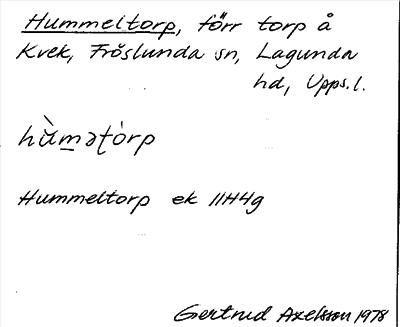 Hummeltorp, förr torp å
Kvek, Fröslunda sn, Lagunda
hd, Upps.l.
hùm̲əʈórp
Hummeltorp ek 11H4g
Gertrud Axelsson 1978